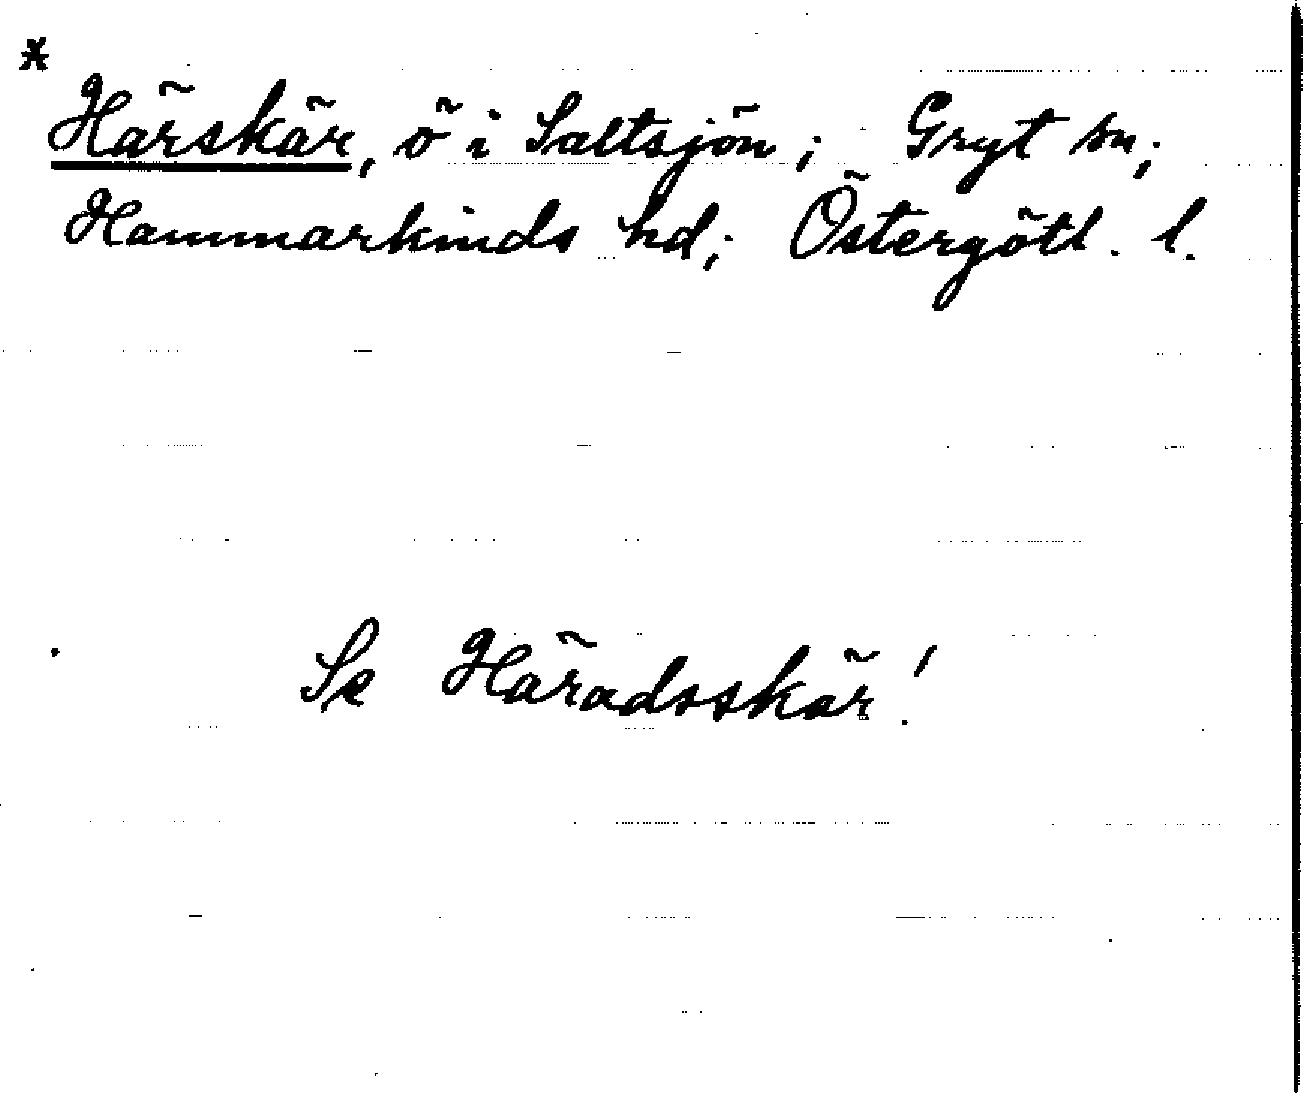 *
Härskär, ö i Saltsjön; Gryt sn;
Hammarkinds hd; Östergötl. l.
Se Häradsskär!